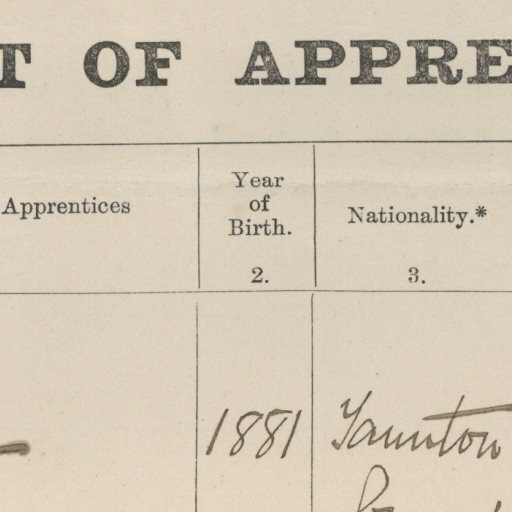 T OF APPRE
Apprentices
Year
of
Birth.
Nationality.*
2.
3.
1881
Taunton